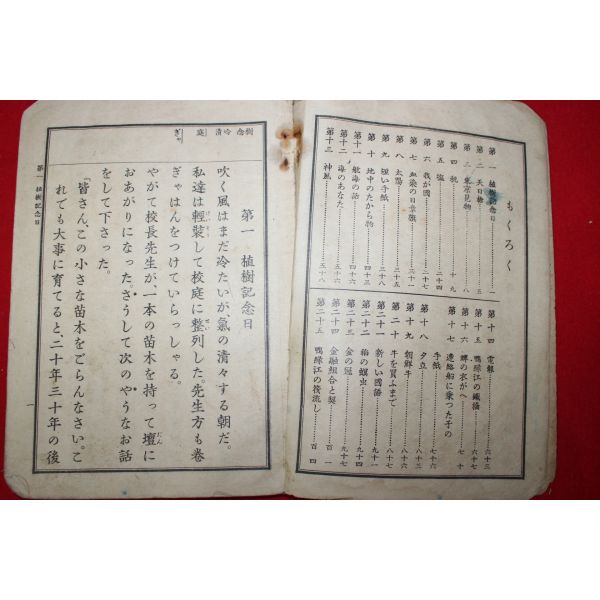 もくろく
第一 植樹記念日 一
第二 天日槍 五
第三 東京見物 八
第四 税 十九
第五 塩 二十四
第六 我が國 二十七
第七 血染の日章旗 三十一
第八 太陽 三十五
第九 短い手紙 三十八
第十 地中のたから物
第十一 航海の話
第十二 海のあなた
第十三 神風 五十八
第十四 電報 六十三
第十五 鴨緑江の鐵橋 六十七
第十六 蟬の衣がへ 七十
第十七 連絡船に乗った子の
手紙 七十六
第十八 夕立
第十九 朝鮮牛 八十六
第二十 牛を買ふまで 八十七
第二十一 新しい國語 九十一
第二十二 稻の螟虫
第二十三 金の冠 九十七
第二十四 金融組合と契 百一
第二十五 鴨緑江の筏流し 百四
樹 念 冷 清 庭 ぎゃ
第一 植樹記念日
吹く風はまだ冷たいが、氣の清々する朝だ。
私達は輕裝して校庭に整列した。先生方も巻
ぎゃはんをつけていらっしゃる。
やがて校長先生が、一本の苗木を持って壇に
おあがりになった。さうして次のやうなお話
をして下さった。
「皆さん、この小さな苗木をごらんなさい。こ
れでも大事に育てると、二十年三十年の後
第一 植樹記念日
一